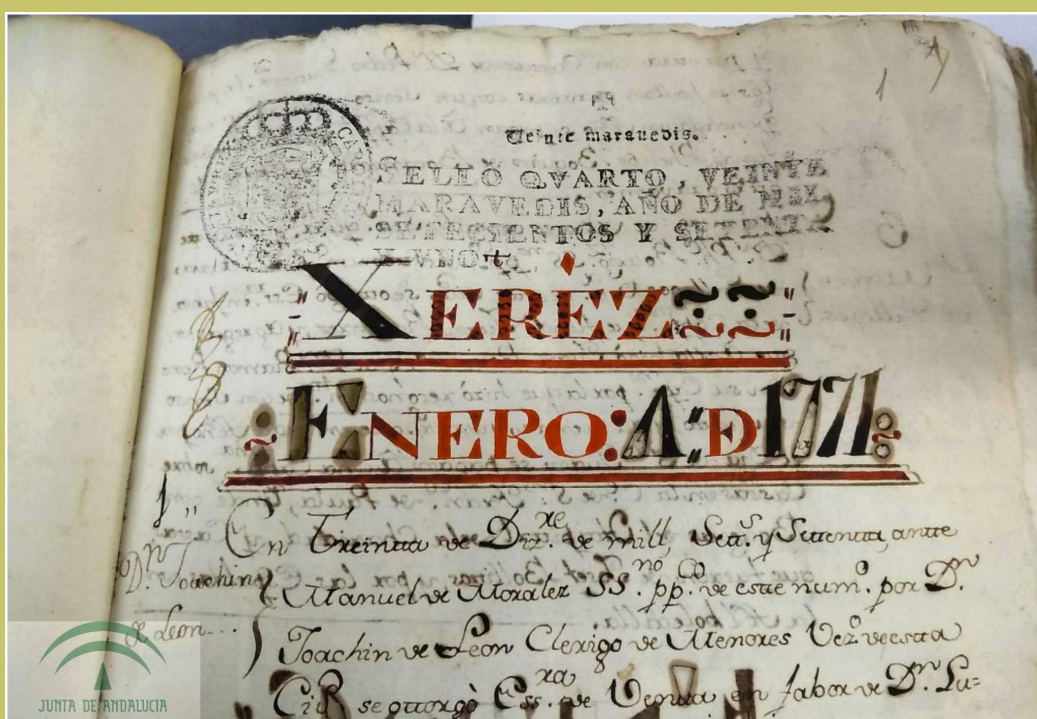 1
Veinte maravedis.
SELLO QVARTO, VEINTE
MARAVEDIS, AÑO DE MIL
SETECIENTOS Y SETENTA
Y VNO.
XERÉZ
ENERO: A. D 1771
1,,
Dn. Joachin
de Leon
En Treinta de Dizre. de mill, Setts. y Settenta, antte
Manuel de Moralez SSno. ppco. de este numo. por Dn.
Joachin de Leon Clerigo de Menores Vezo. de esta
Ciud. se ottorgò Essra. de Venta en fabor de Dn. Lu=
JUNTA DE ANDALUCIA